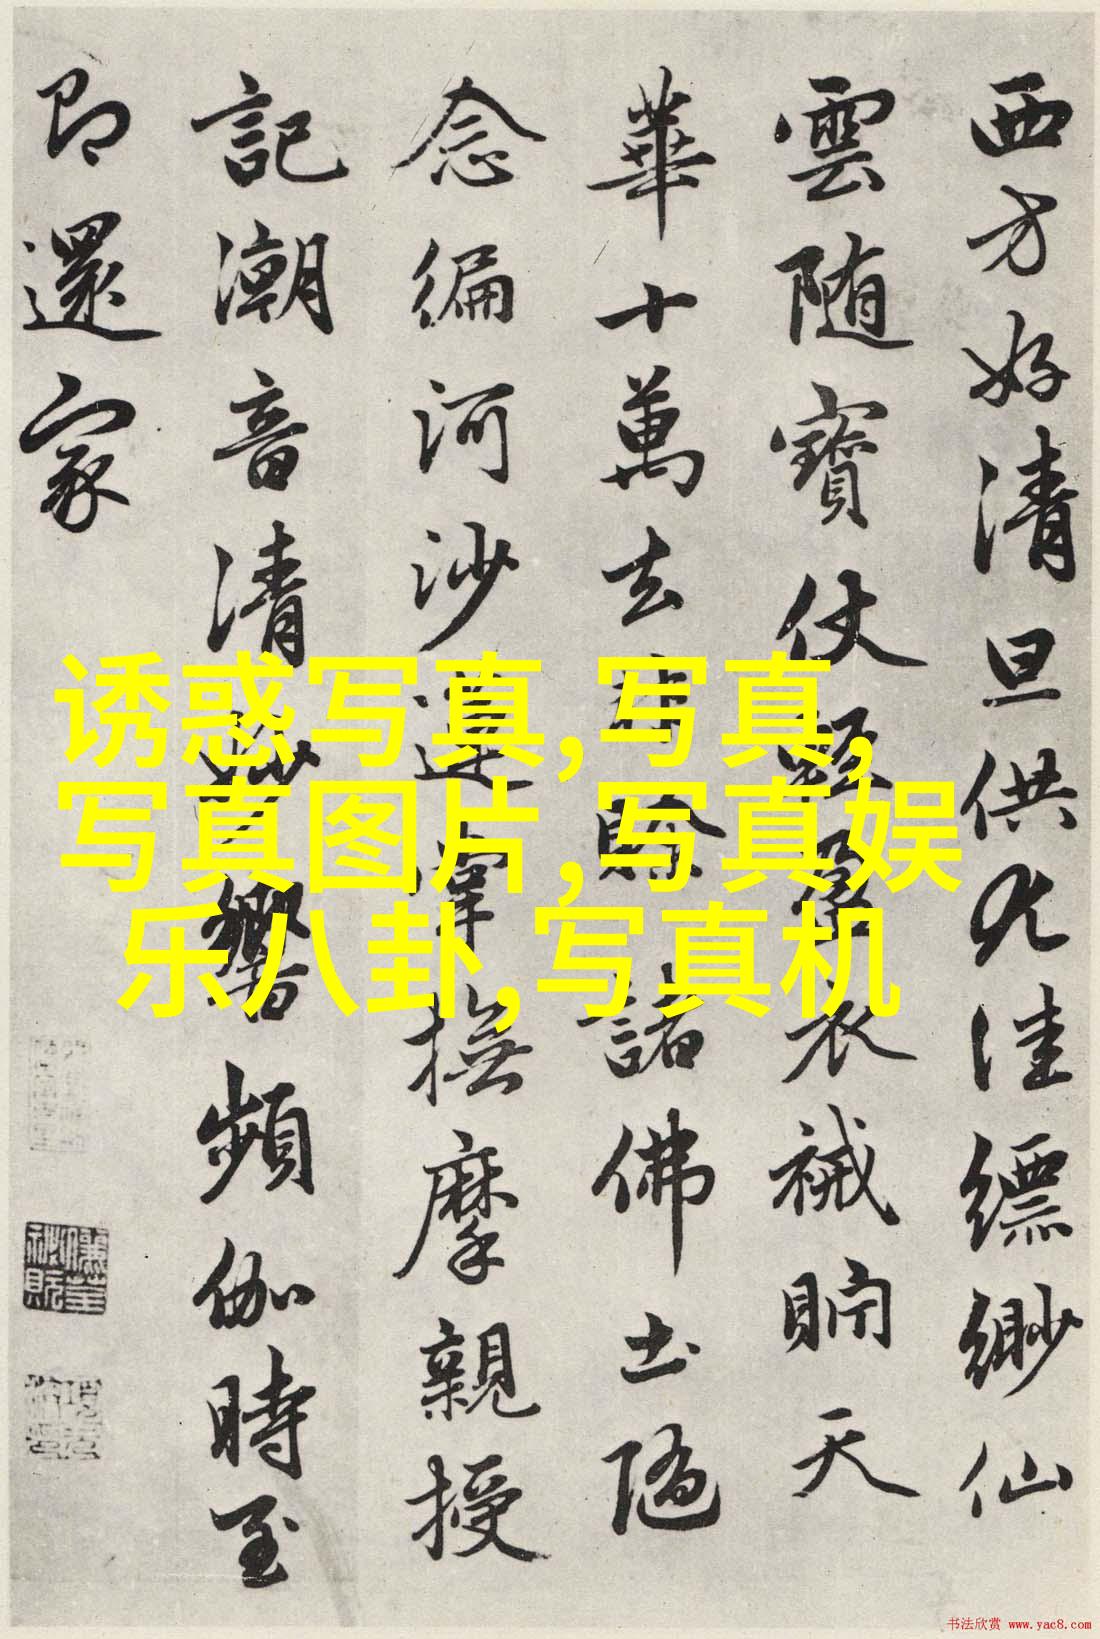 西方好清旦供尤佳缥缈仙
雲随寳仗輕盈衣祴貯天
華十萬去非賖諸佛土隨
念編河沙蓮掌撫摩親授
記潮音清妙響頻伽時至
即還家
诱惑写真,写真,
写真图片,写真娱
乐八卦,写真机
书法欣赏 www.yac8.com